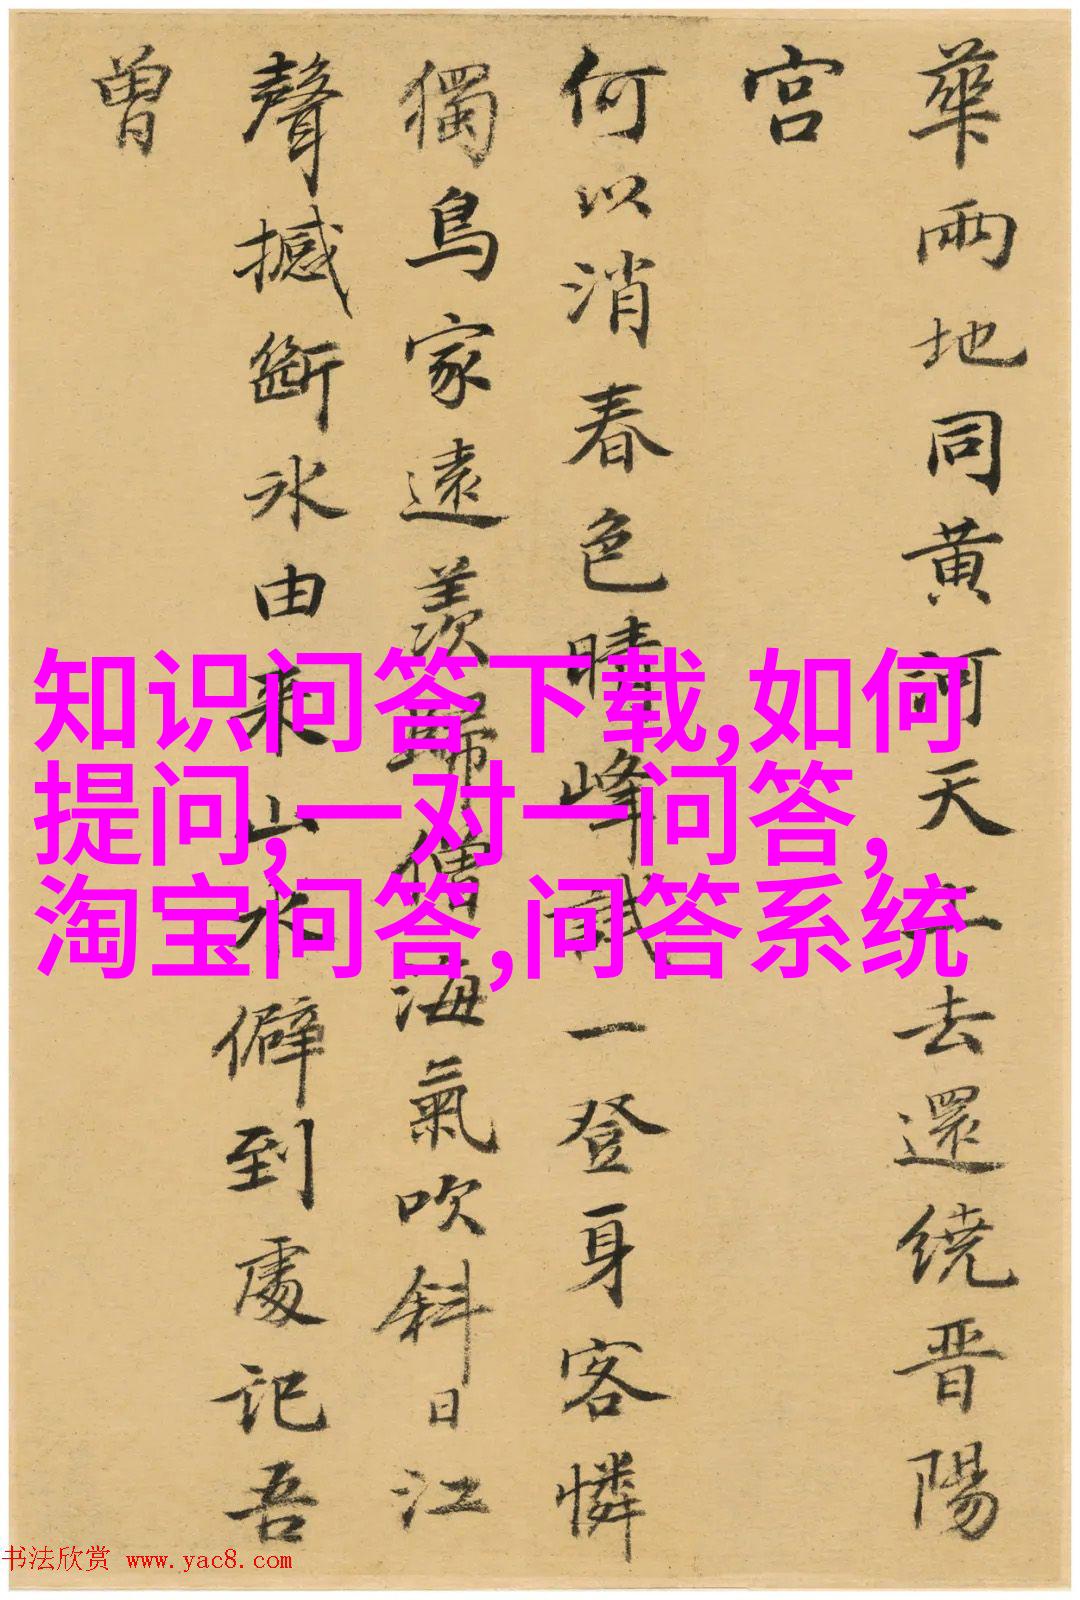 華兩地同黄河天上去還繞晋陽
宫
何以消春色晴峰試一登身客憐
獨鳥家遠羡歸僧海氣吹斜日江
聲撼斷冰由來山水僻到處記吾
曾
知识问答下载,如何
提问,一对一问答,
淘宝问答,问答系统
书法欣赏 www.yac8.com